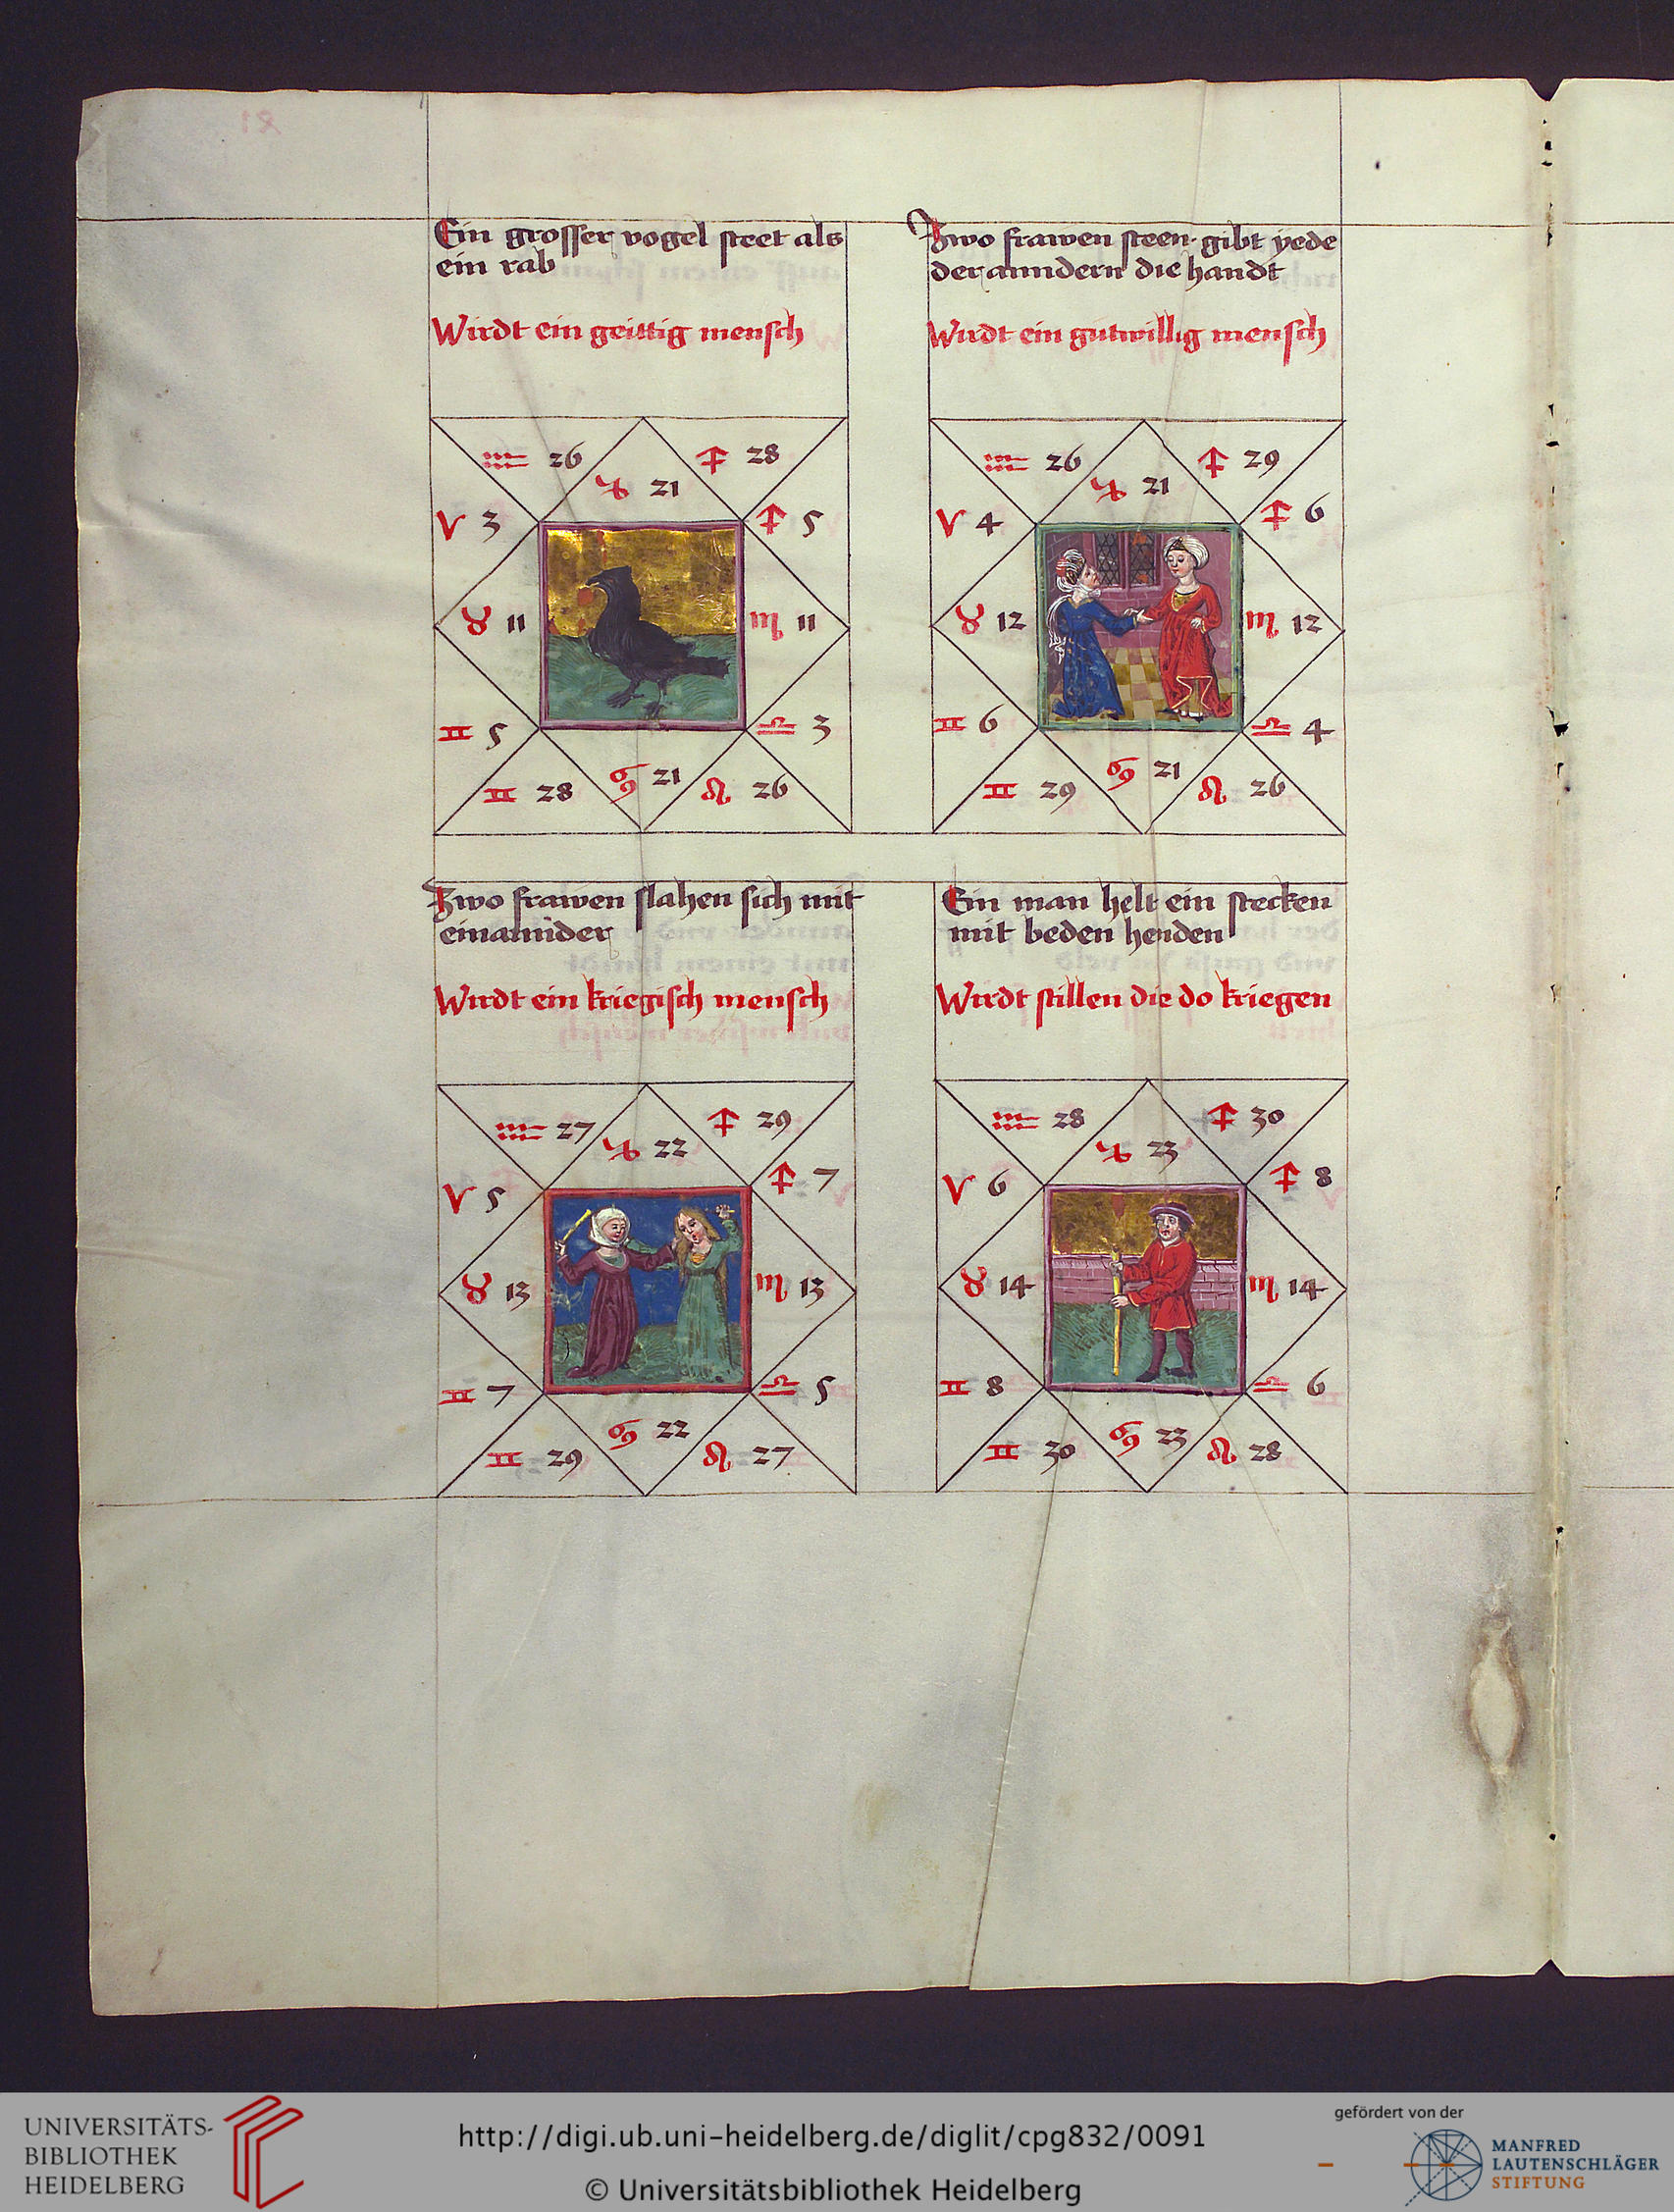 Ein grosser vogel steet als
ein rab
Wirdt ein geittig mensch
♒ 26
♑ 21
♐ 28
V 3
♐ 5
♉ 11
♏ 11
♊ 5
♎ 3
♊ 28
♋ 21
♌ 26
Zwo frawen steen gibt yede
der anndern die handt
Wirdt ein gutwillig mensch
♒ 26
♑ 21
♐ 29
V 4
♐ 6
♉ 12
♏ 12
♊ 6
♎ 4
♊ 29
♋ 21
♌ 26
Zwo frawen slahen sich mit
einannder
Wirdt ein kriegisch mensch
♒ 27
♑ 22
♐ 29
V 5
♐ 7
♉ 13
♏ 13
♊ 7
♎ 5
♊ 29
♋ 22
♌ 27
Ein man helt ein stecken
mit beden henden
Wirdt stillen die do kriegen
♒ 28
♑ 23
♐ 30
V 6
♐ 8
♉ 14
♏ 14
♊ 8
♎ 6
♊ 30
♋ 23
♌ 28
UNIVERSITÄTS-
BIBLIOTHEK
HEIDELBERG
http://digi.ub.uni-heidelberg.de/diglit/cpg832/0091
© Universitätsbibliothek Heidelberg
gefördert von der
MANFRED
LAUTENSCHLÄGER
STIFTUNG